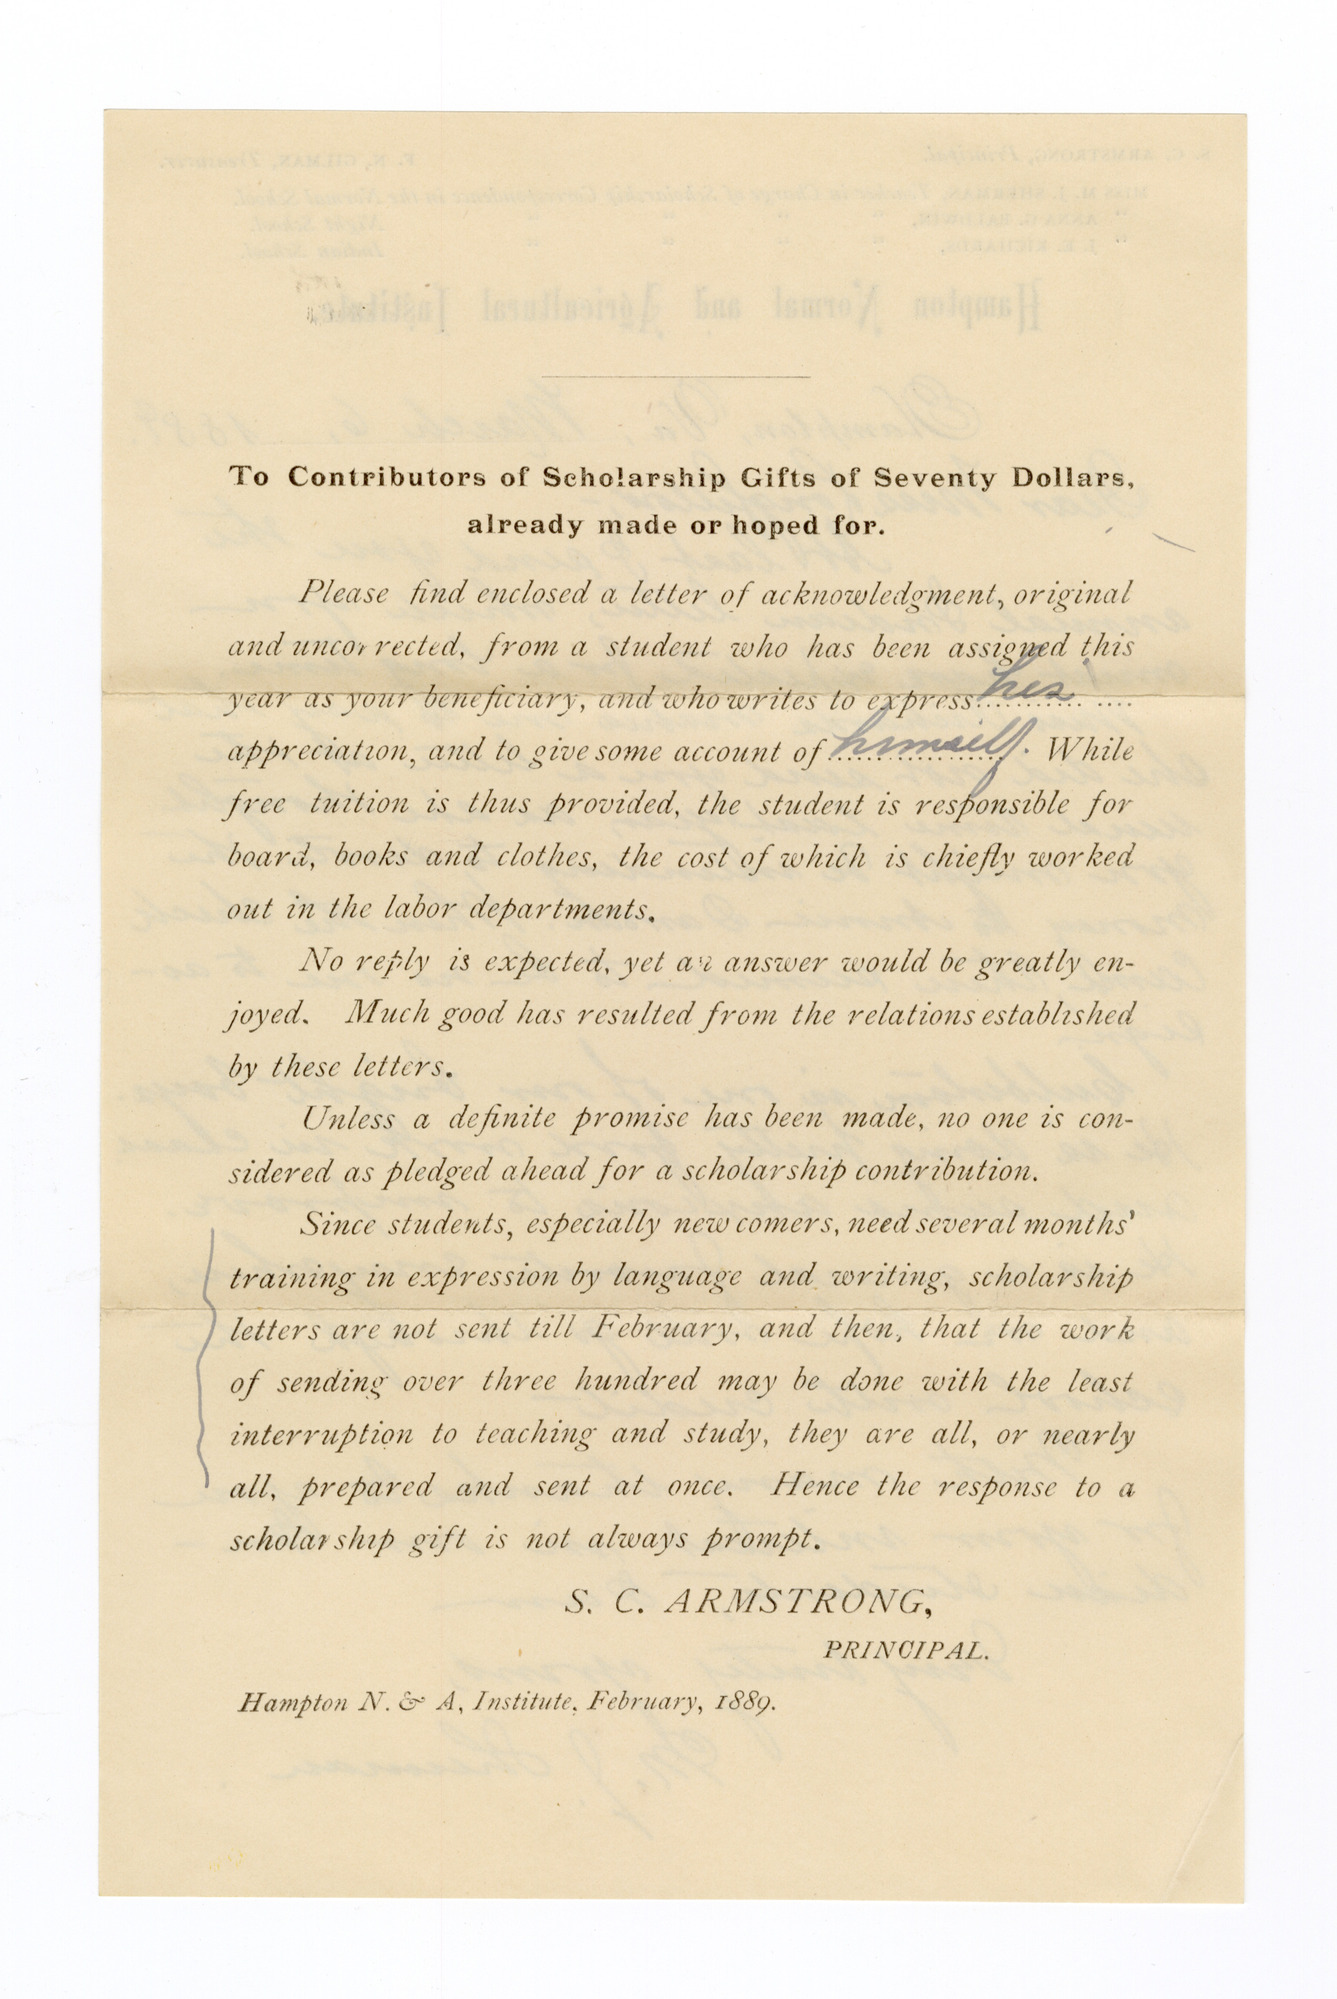 To Contributors of Scholarship Gifts of Seventy Dollars,
already made or hoped for.
Please find enclosed a letter of acknowledgment, original
and uncorrected, from a student who has been assigned this
year as your beneficiary, and who writes to express his
appreciation, and to give some account of himself. While
free tuition is thus provided, the student is responsible for
board, books and clothes, the cost of which is chiefly worked
out in the labor departments.
No reply is expected, yet an answer would be greatly en-
joyed. Much good has resulted from the relations established
by these letters.
Unless a definite promise has been made, no one is con-
sidered as pledged ahead for a scholarship contribution.
Since students, especially new comers, need several months'
training in expression by language and writing, scholarship
letters are not sent till February, and then, that the work
of sending over three hundred may be done with the least
interruption to teaching and study, they are all, or nearly
all, prepared and sent at once. Hence the response to a
scholarship gift is not always prompt.
S. C. ARMSTRONG,
PRINCIPAL.
Hampton N. & A, Institute, February, 1889.